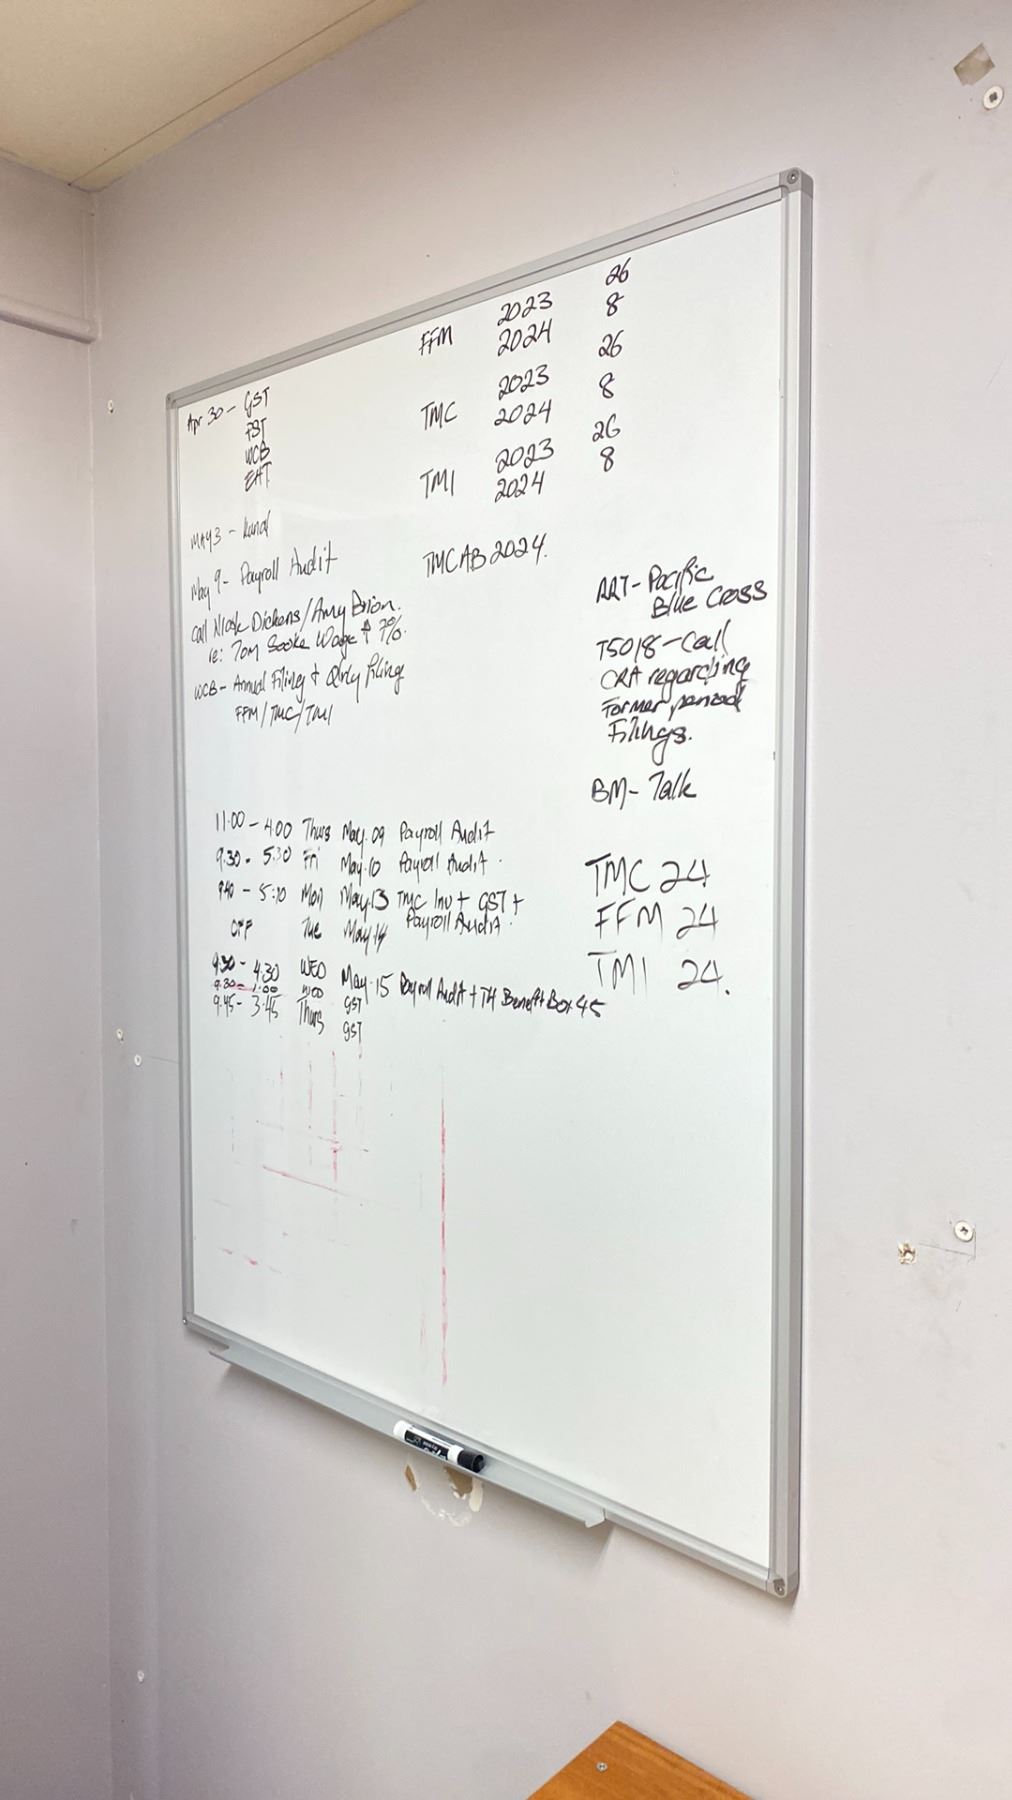 Apr 30 - GST
PST
WCB
EHT
MAY 3 - Kunal
May 9 - Payroll Audit
Call Dickens / Amy Brion.
ie: Tom Sooke Wage ↑ 7%.
WCB - Annual Filing + Qrtly Filing
FFM / TMC / TMI
26
FFM 2023 8
2024
26
2023
TMC 2024 8
26
2023 8
TMI 2024
TMCAB 2024.
- Pacific
Blue Cross
T5018 - Call
CRA regarding
Former period
Filings.
BM - Talk
TMC 24
FFM 24
TMI 24.
11:00 - 4:00 Thurs May. 09 Payroll Audit
9:30 - 5:30 Fri May. 10 Payroll Audit.
9:40 - 5:10 Mon May. 13 TMC Inv + GST +
Payroll Audit.
OFF Tue May. 14
9:30 - 4:30 WED May. 15 Payroll Audit + TH Benefit Box 45
9:30 - 1:00 WED GST
9:45 - 3:45 Thurs GST